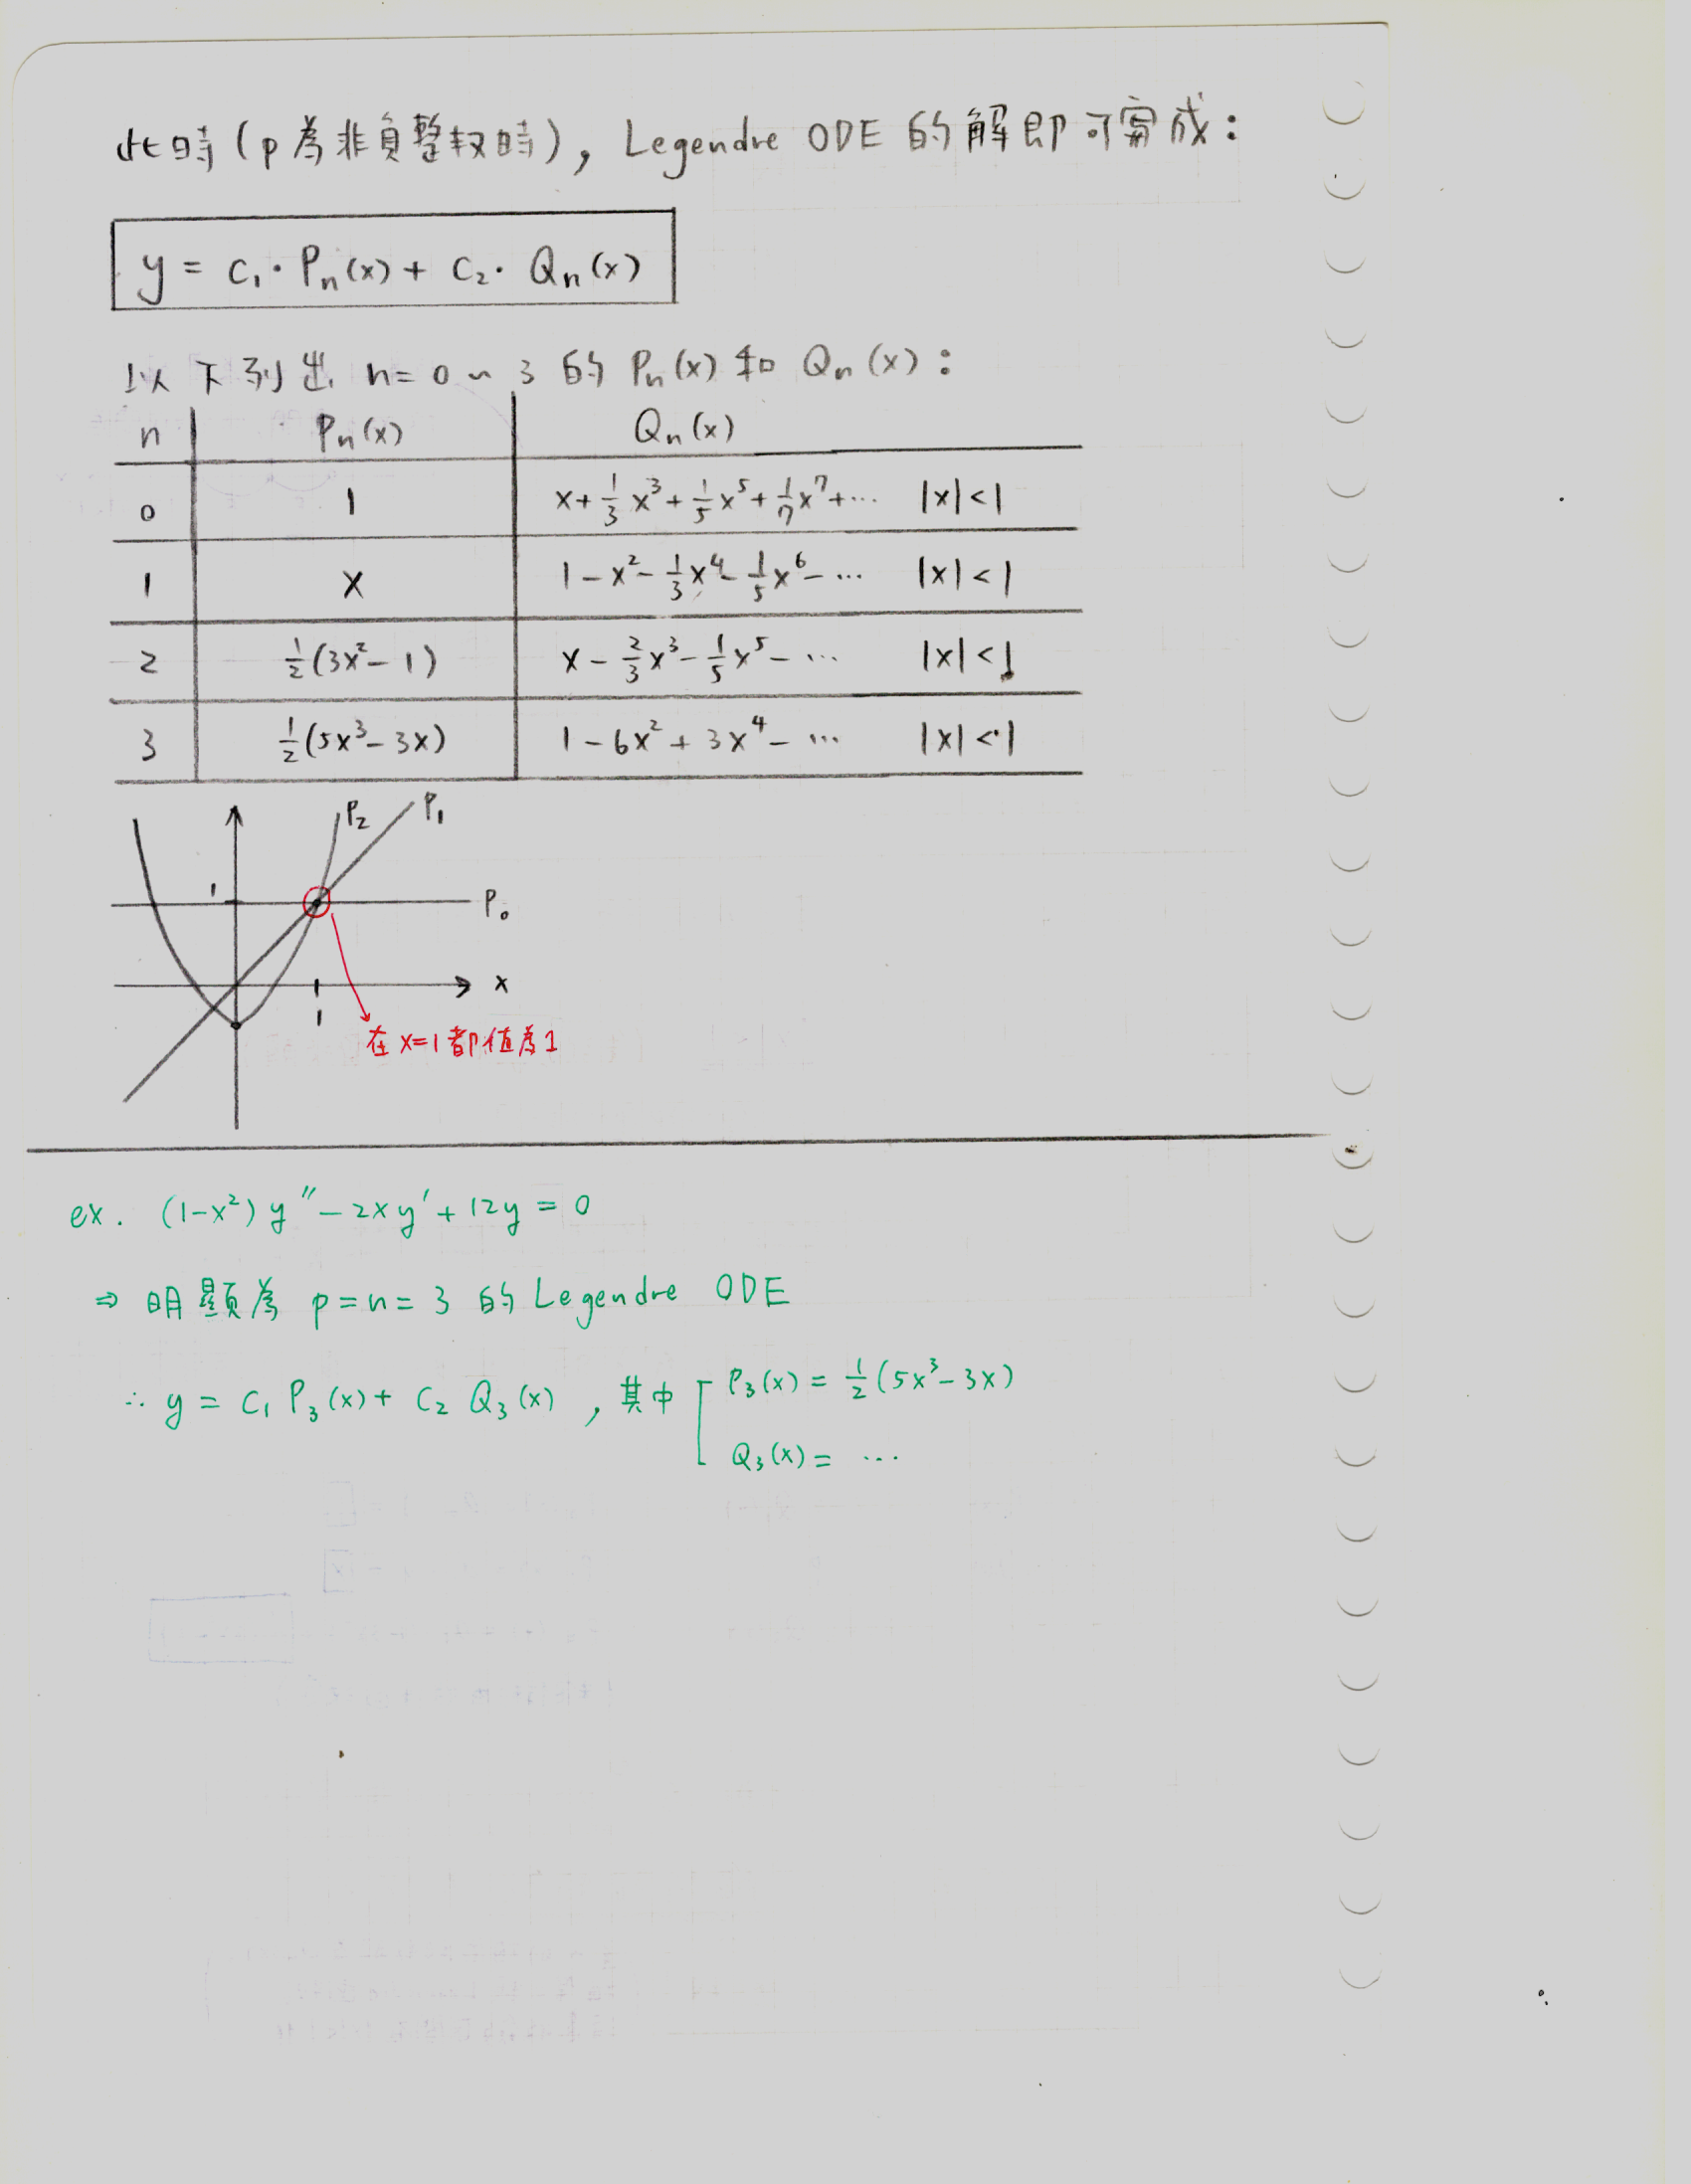 此時(p為非負整数時), Legendre ODE 的解即可寫成:
y = c₁・Pₙ(x) + c₂・Qₙ(x)
以下列出 n=0~3 的 Pₙ(x) 和 Qₙ(x):
n Pₙ(x) Qₙ(x)
0 1 x+1/3 x³+1/5 x⁵+1/7 x⁷+… |x|<1
1 x 1-x²-1/3 x⁴-1/5 x⁶-… |x|<1
2 1/2(3x²-1) x-2/3 x³-1/5 x⁵-… |x|<1
3 1/2(5x³-3x) 1-6x²+3x⁴-… |x|<1
P₂ P₁
1 P₀
x
1
在x=1都值為1
ex. (1-x²)y″-2xy′+12y=0
⇒ 明顯為 p=n=3 的 Legendre ODE
∴ y = c₁ P₃(x) + c₂ Q₃(x) , 其中 P₃(x) = 1/2(5x³-3x)
Q₃(x) = …